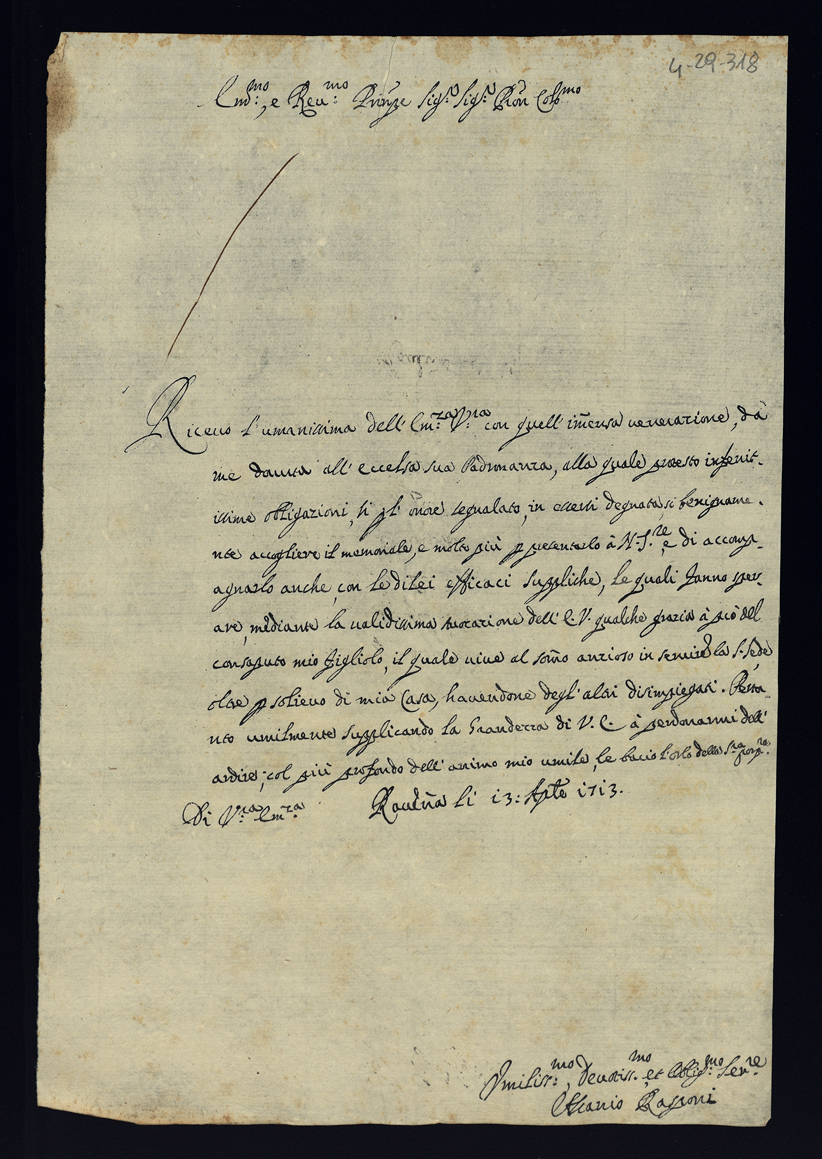 4-29-318
Em:mo, e Reu:mo Prnpe Sig:r Sig:r Pron Colmo
Riceuo l'umanissima dell' Em:za V:ra con quell' im̃ensa uenerazione, dà
me douuta all' eccelsa sua Padronanza, alla quale protesto infenit-
issime obligazioni, si pl' onore segnalato, in essersi degnata si benigname-
nte accogliere il memoriale, e molto più p presentarlo à N. S.re, e di accomp-
agnarlo anche con le di lei efficaci suppliche, le quali fanno sper-
are, mediante la ualidissima euocazione dell' E. V. qualche grazia à prò del
consaputo mio figliolo, il quale uiue al som̃o anzioso in seruire la S. Sede
oltre p solieuo di mia Casa, hauendone degl' altri disimpiegati. Perta-
nto umilmente supplicando la Grandezza di V. E. à perdonarmi dell'
ardire, col più profondo dell' animo mio umile, le bacio l'orlo della S:ra porp:ra
Di V:ra Em:za Rauen̄a li 13: Apłe 1713.
Vmiliss:mo, Deuotiss:mo, et Oblig:mo Ser:re
Ascanio Rasponi